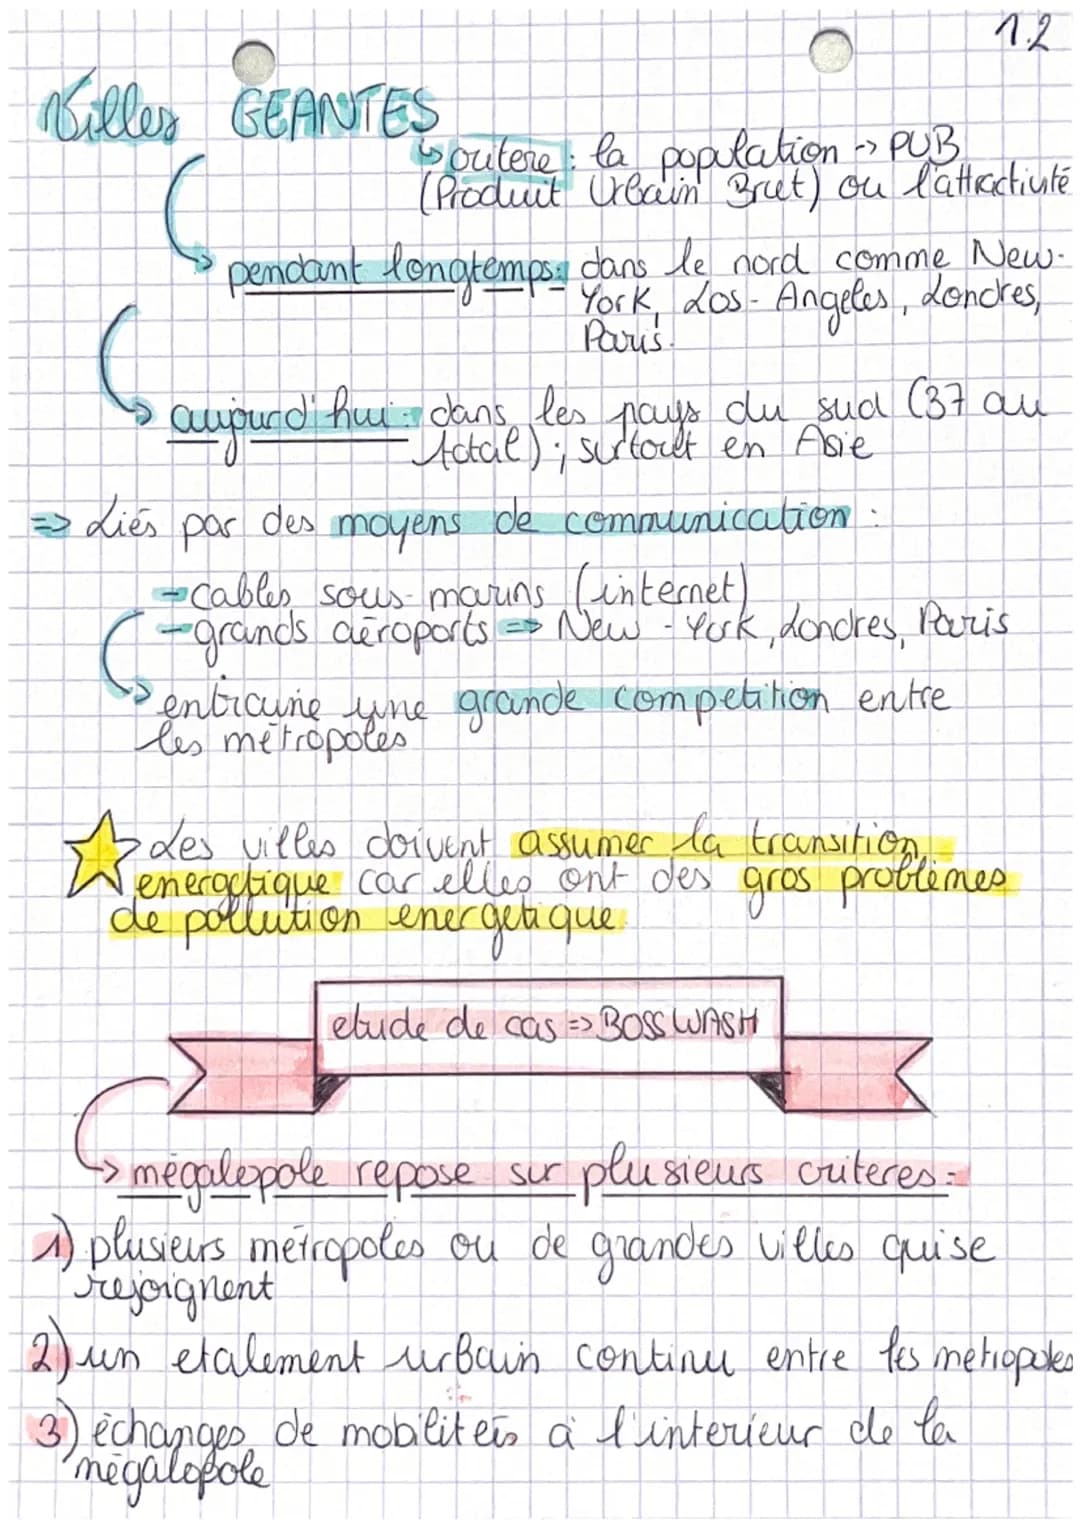 1.2
Villes GEANTES
↳ critere : la population -> PUB
(Produit Urbain Brut) ou l'attractivité
pendant longtemps : dans le nord comme New-
York, Los-Angeles, Londres,
Paris.
aujourd'hui : dans les pays du sud (37 au
total) ; surtout en Asie
=> Liés par des moyens de communication :
- cables sous-marins (internet)
- grands aéroports => New-York, Londres, Paris
entraine une grande competition entre
les métropoles
Les villes doivent assumer la transition
energetique car elles ont des gros problèmes
de pollution energetique.
etude de cas => BOSSWASH
mégalopole repose sur plusieurs criteres :
1) plusieurs métropoles ou de grandes villes qui se
rejoignent
2) un etalement urbain continu entre les metropoles
3) échanges de mobilités à l'interieur de la
mégalopole